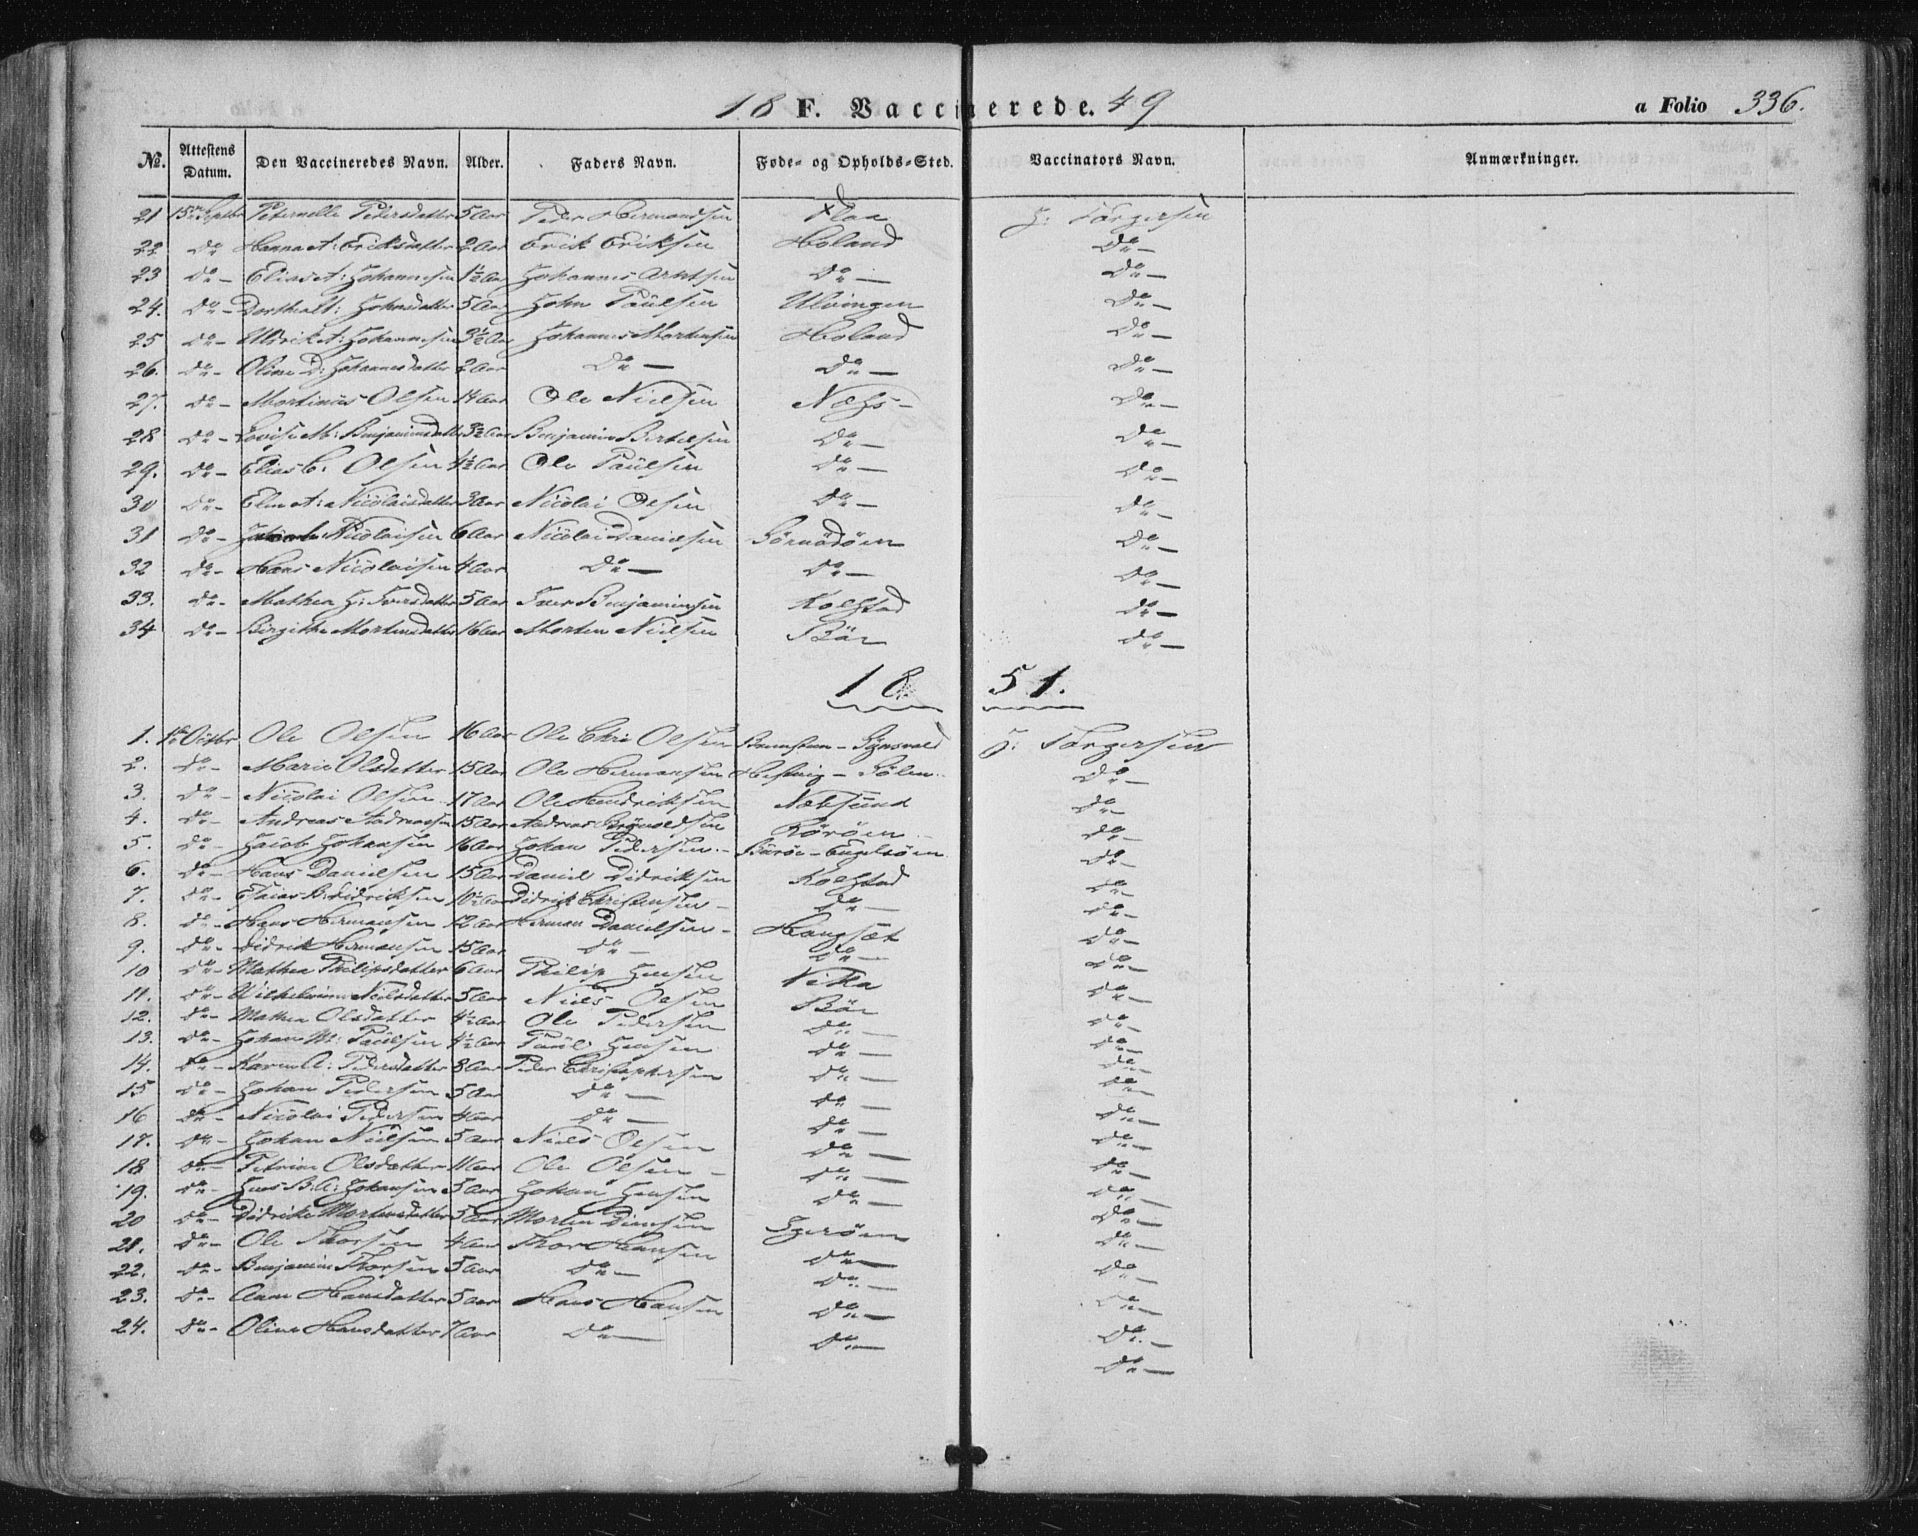 18 F. Vaccinerede. 49 a Folio 336.
No. Attestens Datum. Den Vaccineredes Navn. Alder. Faders Navn. Føde- og Opholds-Sted. Vaccinators Navn. Anmærkninger.
21 15 Septbr Peternelle Pedersdatter 5 Aar Peder Hermandsen Flaa J: Torgersen
22 do Hanna A: Eriksdatter 2 Aar Erik Eriksen Holand do —
23 do — Elias A: Johannesen 1½ Aar Johannes Arntsen do — do —
24. do — Dorthea Johnsdatter 5 Aar John Paulsen Ulvingen do —
25 do — Ulrik A: Johannesen 3½ Aar Johannes Mortensen Holand do —
26. do — Oline D: Johannesdatter 2 Aar do — do — do —
27. do — Martinus Olsen 14 Aar Ole Nielsen Næhs — do —
28 do — Lovise M: Benjaminsdatter 3½ Aar Benjamin Bertelsen do — do —
29. do — Elias C: Olsen 4½ Aar Ole Paulsen do — do —
30 do — Elen A: Nicolaisdatter 3 Aar Nicolai Olsen do — do —
31 do — Nicolaisen 6 Aar Nicolai Danielsen Sørnødøen do —
32 do — Hans Nicolaisen 4 Aar do — do — do —
33. do — Mathea J: Iversdatter 5 Aar Iver Benjaminsen Kolstad do —
34 do — Birgithe Mortensdatter 16 Aar Morten Nielsen Bør do —
18 51.
1. 1 Octbr Ole Olsen 16 Aar Ole Chr: Olsen J: Torgersen
2. do — Marie Olsdatter 15 Aar Ole Hermansen Hestvig — Sølen. do —
3. do — Nicolai Olsen 17 Aar Ole Hendriksen Næhsund do —
4. do — Andreas Andreasen 15 Aar Andreas Rørøen do —
5. do — Jacob Johansen 16 Aar Johan Pedersen — Burøe — Engelsøen do —
6. do — Hans Danielsen 15 Aar Daniel Didriksen Kolstad do —
7. do — Esaias B: Didriksen 10½ Aar Didrik Christensen — do — do —
8. do — Hans Hermansen 12 Aar Herman Danielsen — Haugsæt do —
9. do — Didrik Hermansen 15 Aar do — do — do —
10 do — Mathea Philipsdatter 6 Aar Philip Jensen Vika do —
11. do — Wilhelmine Nielsdatter 5 Aar Niels Olsen Bør do —
12. do — Mathea Olsdatter 4½ Aar Ole Pedersen do — do —
13. do — Johan M: Paulsen 4½ Aar Paul Jensen do — do —
14. do — Karen A: Pedersdatter 8 Aar Peder Christophersen do — do —
15 do — Johan Pedersen 5 Aar do — do — do —
16 do — Nicolai Pedersen 4 Aar do — do — do —
17. do — Johan Nielsen 5 Aar Niels Olsen do — do —
18 do — Petrine Olsdatter 11 Aar Ole Olsen — do — do —
19. do — Jens B: A: Johansen 5 Aar Johan Jensen do — do —
20 do — Didrike Mortensdatter 5 Aar Morten Diensen Igerøen do —
21. do — Ole Thorsen 4 Aar Thor Hansen do — do —
22. do — Benjamin Thorsen 5 Aar do — do — do —
23. do — Ane Hansdatter 5 Aar Hans Hansen do — do —
24. do — Oline Hansdatter 7 Aar do — do — do —
do —